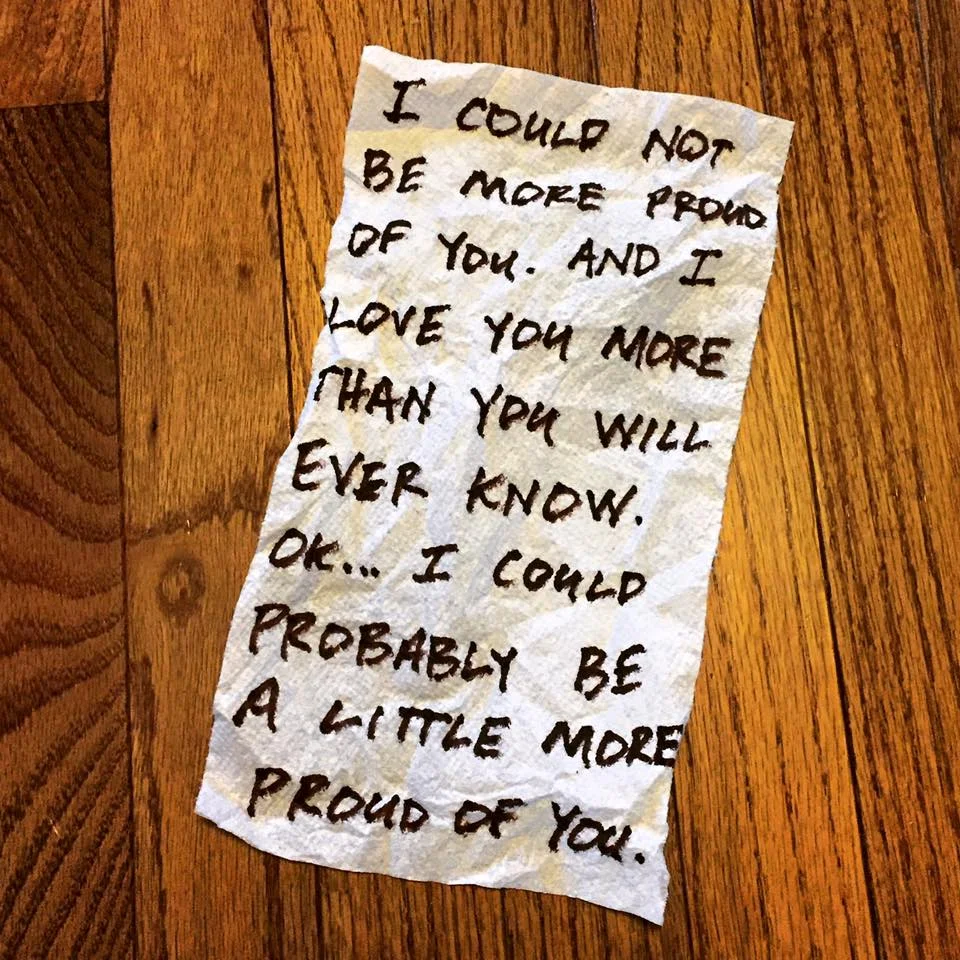 I COULD NOT
BE MORE PROUD
OF YOU. AND I
LOVE YOU MORE
THAN YOU WILL
EVER KNOW.
OK... I COULD
PROBABLY BE
A LITTLE MORE
PROUD OF YOU.